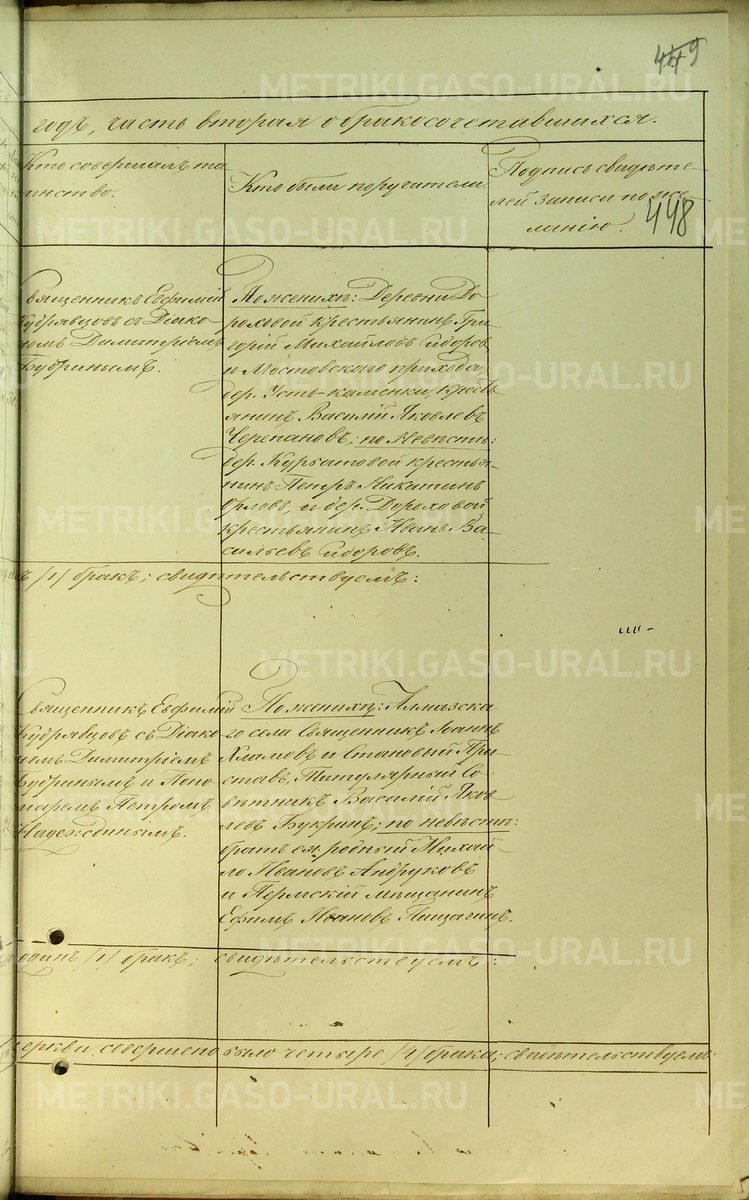 449
годъ, часть вторая о бракосочетавшихся.
Кто совершалъ та-
инство.
Кто были поручатели.
Подпись свидѣте-
лей записи по же-
ланію.
448
Священникъ Евфимій
Кудрявцовъ съ Діако-
номъ Димитріемъ
Бубринымъ.
По женихѣ: Деревни До-
роховой крестьянинъ Гри-
горій Михайловъ Сидоровъ
и Мостовскаго прихода,
дер. Усть-каменки, кресть-
янинъ Василій Яковлевъ
Черепановъ; по невѣстѣ:
дер. Курбатовой крестья-
нинъ Петръ Никитинъ
Орловъ, и дер. Дороховой
крестьянинъ Иванъ Ва-
сильевъ Сидоровъ.
ъ /1/ бракъ; свидѣтельствуемъ:
Священникъ Евфимій
Кудрявцовъ съ Діако-
номъ Димитріемъ
Бубринымъ и Поно-
маремъ Петромъ
Надеждинымъ.
По женихѣ: Алмазска-
го села Священникъ Іоаннъ
Хламовъ и Становый При-
ставъ, Титулярный Со-
вѣтникъ Василій Яков-
левъ Букринъ; по невѣстѣ:
братъ ея родный Михай-
ло Ивановъ Андруковъ
и Пермскій мѣщанинъ
Ефимъ Ивановъ Пищагинъ.
одинъ /1/ бракъ; свидѣтельствуемъ:
еркви совершено было четыре /4/ брака; свидѣтельствуемъ:
METRIKI.GASO-URAL.RU
METRIKI.GASO-URAL.RU
METRIKI.GASO-URAL.RU
METRIKI.GASO-URAL.RU
METRIKI.GASO-URAL.RU
METRIKI.GASO-URAL.RU
METRIKI.GASO-URAL.RU
METRIKI.GASO-URAL.RU